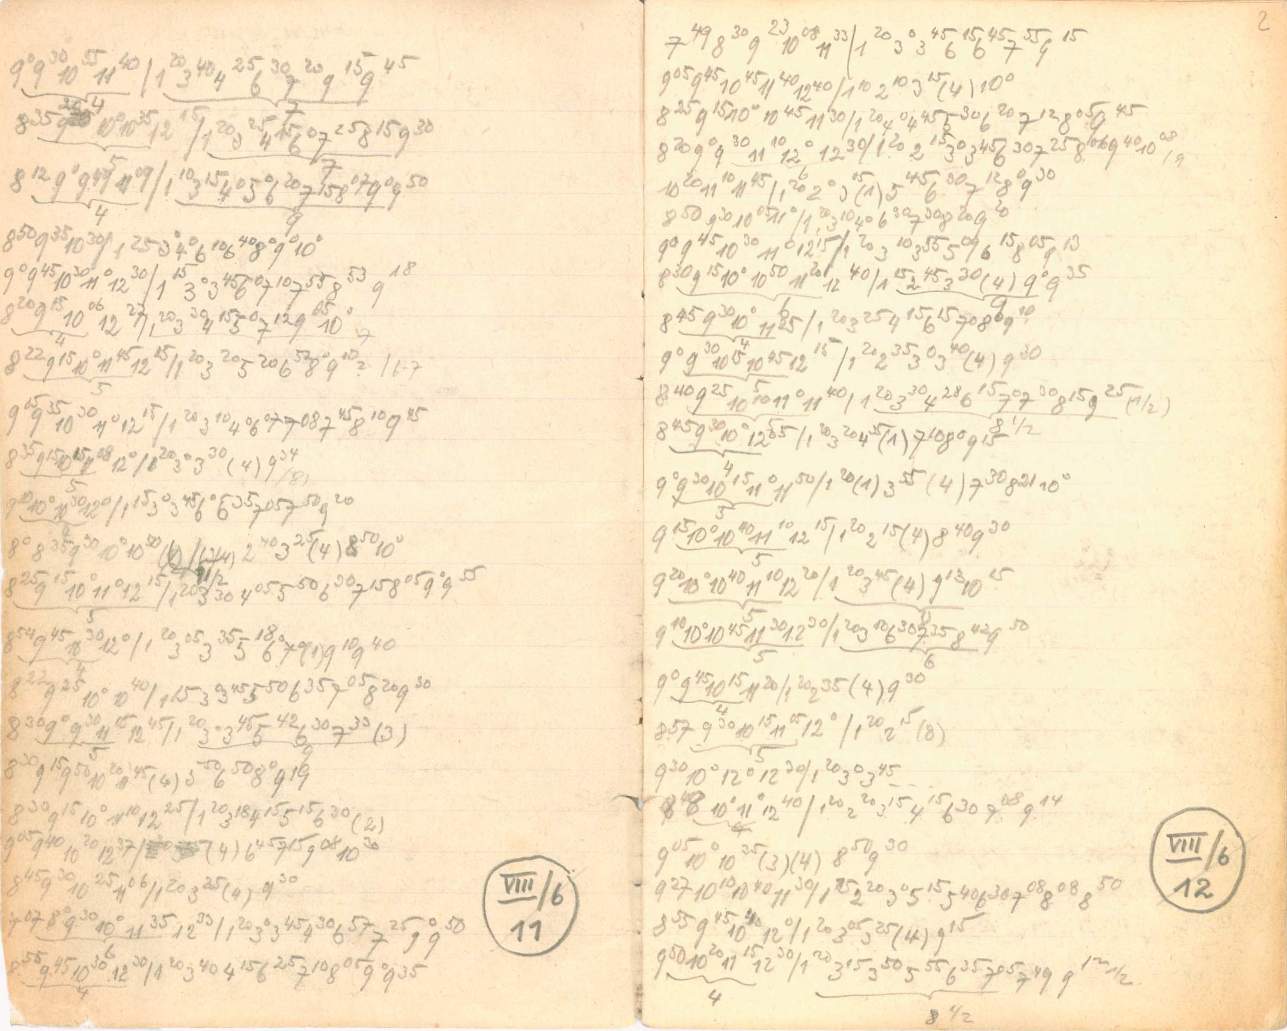 9⁰ 9³⁰ 10⁵⁵ 11⁴⁰ / 1²⁰ 3⁴⁰ 4²⁵ 6³⁰ 7²⁰ 9¹⁵ 9⁴⁵
4 7
10⁰ 10³⁵ 12¹⁵ / 1²⁰ 3²⁵ 4¹⁵ 6⁰⁷ 7²⁵ 8¹⁵ 9³⁰
7
8¹² 9⁰ 9⁴⁰ 11⁰⁹ / 1¹⁰ 3¹⁵ 4⁰ 5⁰ 6²⁰ 7¹⁵ 8⁰⁷ 9⁰ 9⁵⁰
4 8
8⁵⁰ 9³⁵ 10³⁰ / 1²⁵ 3⁰ 4⁰ 6¹⁰ 6⁴⁰ 8⁰ 9⁰ 10⁰
9⁰ 9⁴⁵ 10³⁰ 11⁰ 12³⁰ / 1¹⁵ 3⁰ 3⁴⁵ 6⁰ 7¹⁰ 7⁵⁵ 8⁵³ 9¹⁸
8²⁰ 9¹⁵ 10⁰⁶ 12²⁷ / 1²⁰ 3³⁰ 4¹⁵ 5⁰ 7¹² 9⁰⁵ 10⁰
4 7
8²² 9¹⁵ 10⁰ 11⁴⁵ 12¹⁵ / 1²⁰ 3²⁰ 5²⁰ 6⁵⁷ 8⁰ 9¹⁰
5
9⁰⁵ 9³⁵ 10³⁰ 11⁰ 12¹⁵ / 1²⁰ 3¹⁰ 4⁰ 6⁰⁷ 7⁰⁸ 7⁴⁵ 8¹⁰ 9⁴⁵
8³⁵ 9¹⁵ 10¹⁵ 11⁰⁸ 12⁰ / 1²⁰ 3⁰ 3³⁰ (4) 9³⁴
5 (8)
9⁰ 10⁰ 11³⁰ 12⁰ / 1¹⁵ 3⁰ 3⁴⁵ 6⁰ 6³⁵ 7⁰⁵ 7⁵⁰ 9²⁰
8⁰ 8³⁵ 9³⁰ 10⁰ 10⁵⁰ 2⁴⁰ 3²⁵ (4) 8⁵⁰ 10⁰
8²⁵ 9¹⁵ 10⁰ 11⁰ 12¹⁵ / 1²⁰ 3³⁰ 4⁰⁵ 5⁵⁰ 6³⁰ 7¹⁵ 8⁰⁵ 9⁰ 9⁵⁵
5
8⁵⁴ 9⁴⁵ 11³⁰ 12⁰ / 1²⁰ 3⁰⁵ 3³⁵ 5¹⁸ 6⁰ 7⁰ (1) 9¹⁰ 9⁴⁰
4
8²² 9²⁵ 10⁰ 10⁴⁰ / 1¹⁵ 3⁰ 3⁴⁵ 5⁵⁰ 6³⁵ 7⁰⁵ 8²⁰ 9³⁰
8³⁰ 9⁰ 9³⁰ 11¹⁵ 12⁴⁵ / 1²⁰ 3⁰ 3⁴⁵ 5⁴² 6³⁰ 7³⁰ (3)
5 9
8³⁰ 9¹⁵ 9⁵⁰ 10²⁰ 11⁴⁵ (4) 5⁵⁰ 6⁵⁰ 8⁰ 9¹⁹
8³⁰ 9¹⁵ 10⁰ 11¹⁰ 12²⁵ / 1²⁰ 3¹⁸ 4¹⁵ 5¹⁵ 6³⁰ (2)
9⁰⁵ 9⁴⁰ 10²⁰ 12³⁷ / (4) 6⁴⁵ 7¹⁵ 9⁰⁸ 10³⁰
8⁴⁵ 9³⁰ 10²⁵ 11⁰⁶ / 1²⁰ 3²⁵ (4) 9³⁰
7⁰⁷ 8⁰ 9³⁰ 10⁰ 11³⁵ 12³³ / 1²⁰ 3⁰ 3⁴⁵ 4³⁰ 6⁵⁷ 7²⁵ 9⁰ 9⁵⁰
6
8⁵⁵ 9⁴⁵ 10³⁰ 12³⁰ / 1²⁰ 3⁴⁰ 4¹⁵ 6²⁵ 7¹⁰ 8⁰⁵ 9⁰ 9³⁵
4
VIII/6
11
2
7⁴⁹ 8³⁰ 9²³ 10⁰⁸ 11³³ / 1²⁰ 3⁰ 3⁴⁵ 6¹⁵ 6⁴⁵ 7⁵⁵ 9¹⁵
9⁰⁵ 9⁴⁵ 10⁴⁵ 11⁴⁰ 12⁴⁰ / 1¹⁰ 2¹⁰ 3¹⁵ (4) 10⁰
8²⁵ 9¹⁵ 10⁰ 10⁴⁵ 11³⁰ / 1²⁰ 4⁰ 4⁴⁵ 5³⁰ 6²⁰ 7¹² 8⁰⁵ 9⁴⁵
8²⁰ 9⁰ 9³⁰ 11¹⁰ 12⁰ 12³⁰ / 1²⁰ 2¹⁵ 3⁰ 3⁴⁵ 6³⁰ 7²⁵ 8⁰⁶ 9⁴⁰ 10⁰⁸
6 /9
10²⁰ 11¹⁰ 11⁴⁵ / 1²⁰ 2⁰ 3¹⁵ (1) 5⁴⁵ 6³⁰ 7¹² 8⁰ 9³⁰
8⁵⁰ 9³⁰ 10⁰⁵ 11⁰ / 1²⁰ 3¹⁰ 4⁰ 6³⁰ 7³⁰ 8²⁰ 9²⁰
9⁰ 9⁴⁵ 10³⁰ 11⁰ 12¹⁵ / 1²⁰ 3¹⁰ 3⁵⁵ 5⁰⁹ 6¹⁵ 8⁰⁵ 9¹³
8³⁰ 9¹⁵ 10⁰ 10⁵⁰ 11²⁰ 12⁴⁰ / 1¹⁵ 2⁴⁵ 3³⁰ (4) 9⁰ 9³⁵
6 9
8⁴⁵ 9³⁰ 10⁰ 11²⁵ / 1²⁰ 3²⁵ 4¹⁵ 6¹⁵ 7⁰ 8⁰ 9¹⁰
4
9⁰ 9³⁰ 10¹⁵ 10⁴⁵ 12¹⁵ / 1²⁰ 2³⁵ 3⁰ 3⁴⁰ (4) 9³⁰
5
8⁴⁰ 9²⁵ 10¹⁰ 11⁰ 11⁴⁰ / 1²⁰ 3³⁰ 4²⁸ 6¹⁵ 7⁰ 7³⁰ 8¹⁵ 9²⁵ (1/2)
8 1/2
8⁴⁵ 9³⁰ 10⁰ 12⁰⁵ / 1²⁰ 3²⁰ 4³⁵ (1) 7¹⁰ 8⁰ 9¹⁵
4
9⁰ 9³⁰ 10¹⁵ 11⁰ 11⁵⁰ / 1²⁰ (1) 3⁵⁵ (4) 7³⁰ 8²¹ 10⁰
5
9¹⁵ 10⁰ 10⁴⁰ 11¹⁰ 12¹⁵ / 1²⁰ 2¹⁵ (4) 8⁴⁰ 9³⁰
5
9²⁰ 10⁰ 10⁴⁰ 11¹⁰ 12²⁰ / 1²⁰ 3⁴⁵ (4) 9¹³ 10¹⁵
5 8
9¹⁰ 10⁰ 10⁴⁵ 11³⁰ 12³⁰ / 1²⁰ 3¹⁰ 6³⁰ 7³⁵ 8⁴² 9⁵⁰
5 6
9⁰ 9⁴⁵ 10¹⁵ 11²⁰ / 1²⁰ 2³⁵ (4) 9³⁰
4
8⁵⁷ 9³⁰ 10¹⁵ 11⁰⁵ 12⁰ / 1²⁰ 2¹⁵ (8)
5
9³⁰ 10⁰ 12⁰ 12³⁰ / 1²⁰ 3⁰ 3⁴⁵
10⁰ 11⁰ 12⁴⁰ / 1²⁰ 2²⁰ 3¹⁵ 4¹⁵ 6³⁰ 7⁰⁸ 9¹⁴
4
9⁰⁵ 10⁰ 10³⁵ (3) (4) 8⁵⁰ 9³⁰
9²⁷ 10¹⁰ 10⁴⁰ 11³⁰ / 1¹⁵ 2²⁰ 3⁰ 5¹⁵ 5⁴⁰ 6³⁰ 7⁰⁸ 8⁰⁸ 8⁵⁰
8⁵⁵ 9⁴⁵ 10⁴⁰ 12⁰ / 1²⁰ 3⁰⁵ 3²⁵ (4) 9¹⁵
9⁵⁰ 10²⁰ 11¹⁵ 12³⁰ / 1²⁰ 3¹⁵ 3⁵⁰ 5⁵⁵ 6³⁵ 7⁰⁵ 7⁴⁹ 9
4 8 1/2
VIII/6
12